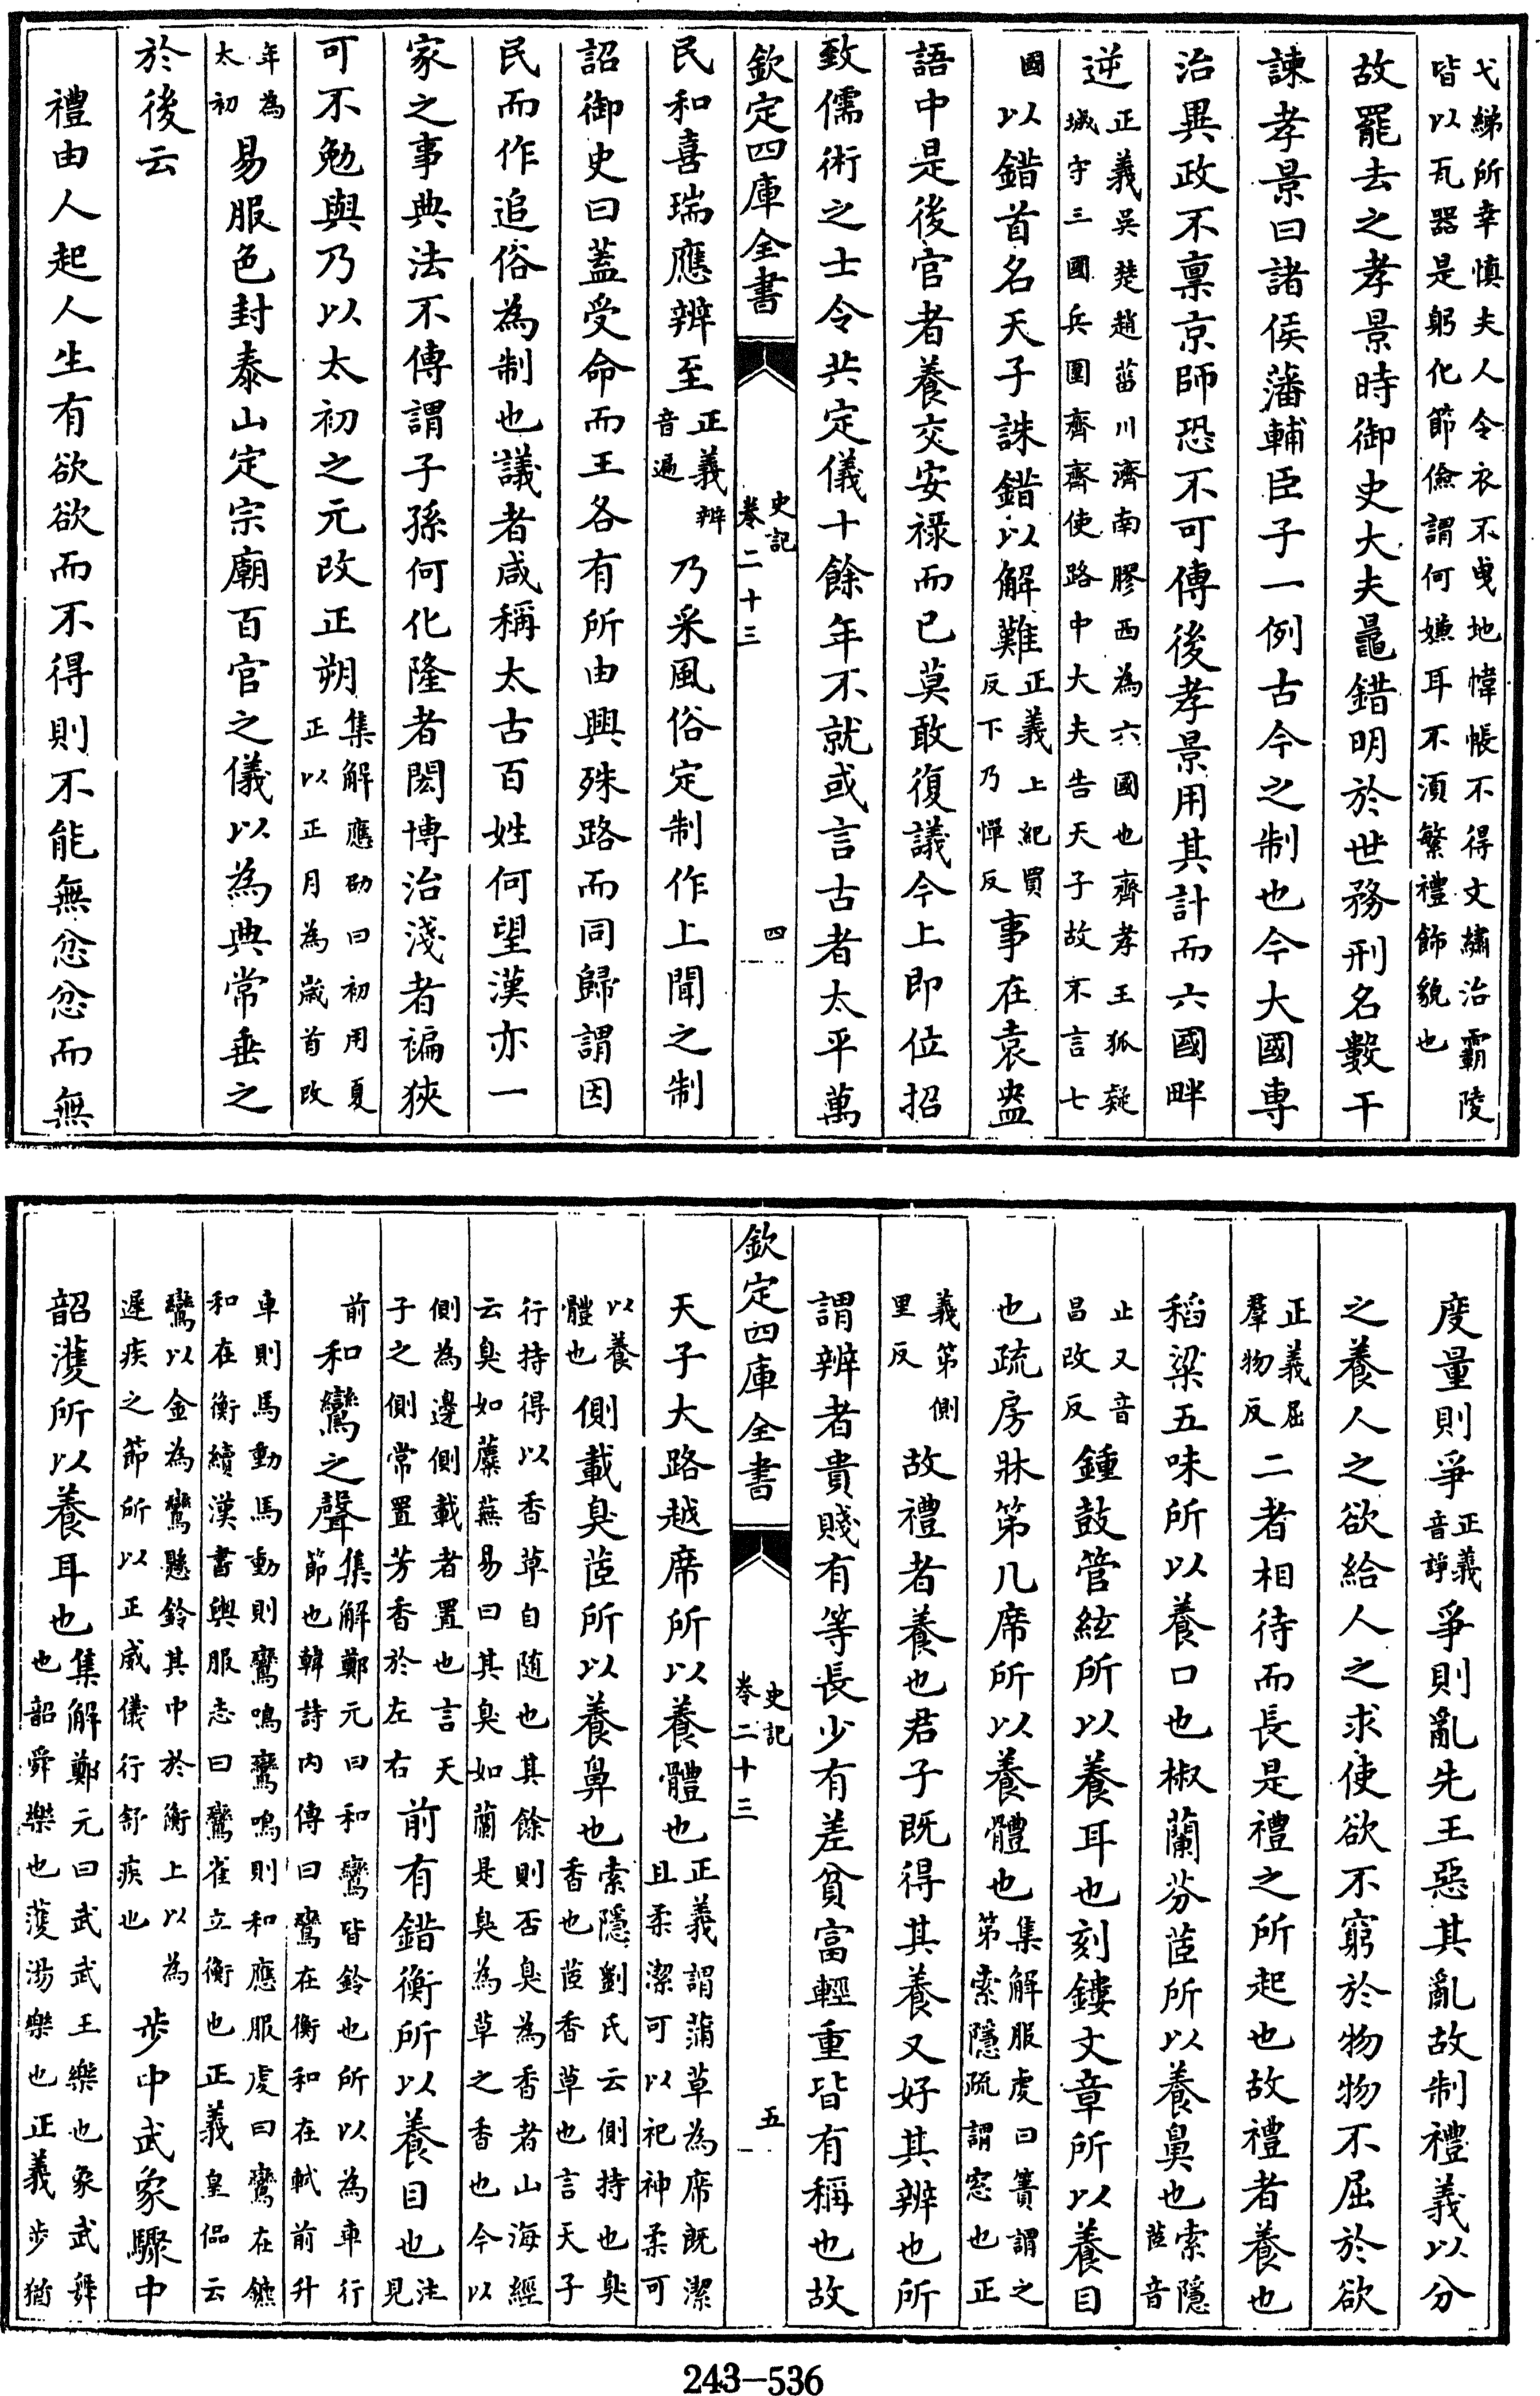 弋綈所幸慎夫人令衣不曵地幃帳不得文繡治霸陵
皆以瓦器是躬化節儉謂何嫌耳不湏繁禮飾貌也
故罷去之孝景時御史大夫鼂錯明於世務刑名數干
諫孝景曰諸侯藩輔臣子一例古今之制也今大國専
治異政不稟京師恐不可傳後孝景用其計而六國畔
逆正義吳楚趙菑川濟南膠西為六國也齊孝王狐疑
城守三國兵圍齊齊使路中大夫告天子故不言七
國以錯首名天子誅錯以解難正義上紀買
反下乃憚反事在袁盎
語中是後官者養交安禄而已莫敢復議今上即位招
致儒術之士令共定儀十餘年不就或言古者太平萬
欽定四庫全書
史記
卷二十三
四
民和喜瑞應辨至正義辨
音遍乃采風俗定制作上聞之制
詔御史曰蓋受命而王各有所由興殊路而同歸謂因
民而作追俗為制也議者咸稱太古百姓何望漢亦一
家之事典法不傳謂子孫何化隆者閎博治淺者褊狹
可不勉與乃以太初之元改正朔集解應劭曰初用夏
正以正月為歲首改
年為
太初易服色封泰山定宗廟百官之儀以為典常垂之
於後云
禮由人起人生有欲欲而不得則不能無忿忿而無
度量則爭正義
音諍爭則亂先王惡其亂故制禮義以分
之養人之欲給人之求使欲不窮於物物不屈於欲
正義屈
羣物反二者相待而長是禮之所起也故禮者養也
稻粱五味所以養口也椒蘭芬茝所以養鼻也索隱
茝音
止又音
昌改反鍾鼓管絃所以養耳也刻鏤文章所以養目
也疏房牀笫几席所以養體也集解服虔曰簀謂之
第索隱疏謂窓也正
義第側
里反故禮者養也君子既得其養又好其辨也所
謂辨者貴賤有等長少有差貧富輕重皆有稱也故
欽定四庫全書
史記
卷二十三
五
天子大路越席所以養體也正義謂蒲草為席既潔
且柔潔可以祀神柔可
以養
體也側載臭茝所以養鼻也索隱劉氏云側持也臭
香也茝香草也言天子
行持得以香草自随也其餘則否臭為香者山海經
云臭如蘪蕪易曰其臭如蘭是臭為草之香也今以
側為邊側載者置也言天
子之側常置芳香於左右前有錯衡所以養目也注
見
前和鸞之聲集解鄭元曰和鸞皆鈴也所以為車行
節也韓詩内傳曰鸞在衡和在軾前升
車則馬動馬動則鸞鳴鸞鳴則和應服虔曰鸞在鑣
和在衡續漢書輿服志曰鸞雀立衡也正義皇侃云
鸞以金為鸞懸鈴其中於衡上以為
遲疾之節所以正威儀行舒疾也步中武象驟中
韶濩所以養耳也集解鄭元曰武武王樂也象武舞
也韶舜樂也濩湯樂也正義步猶
243-536